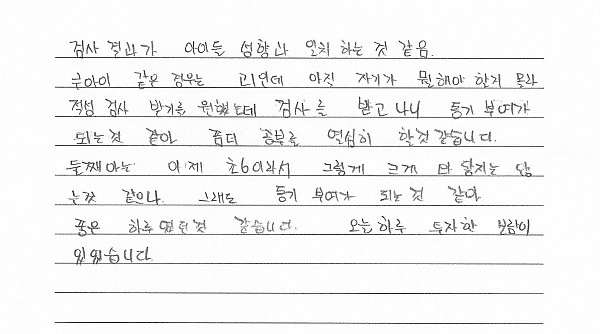 검사 결과가 아이들 성향과 일치 하는 것 같음.
큰아이 같은 경우는 고1인데 아직 자기가 뭘해야 할지 몰라
적성 검사 받기를 원했는데 검사를 받고 나니 동기 부여가
되는것 같아 좀더 공부를 열심히 할것 같습니다.
둘째 아는 이제 초6이라서 그렇게 크게 와 닿지는 않
는것 같으나. 그래도 동기 부여가 되는 것 같아
좋은 하루 였던것 같습니다. 오늘 하루 투자한 보람이
있었습니다.